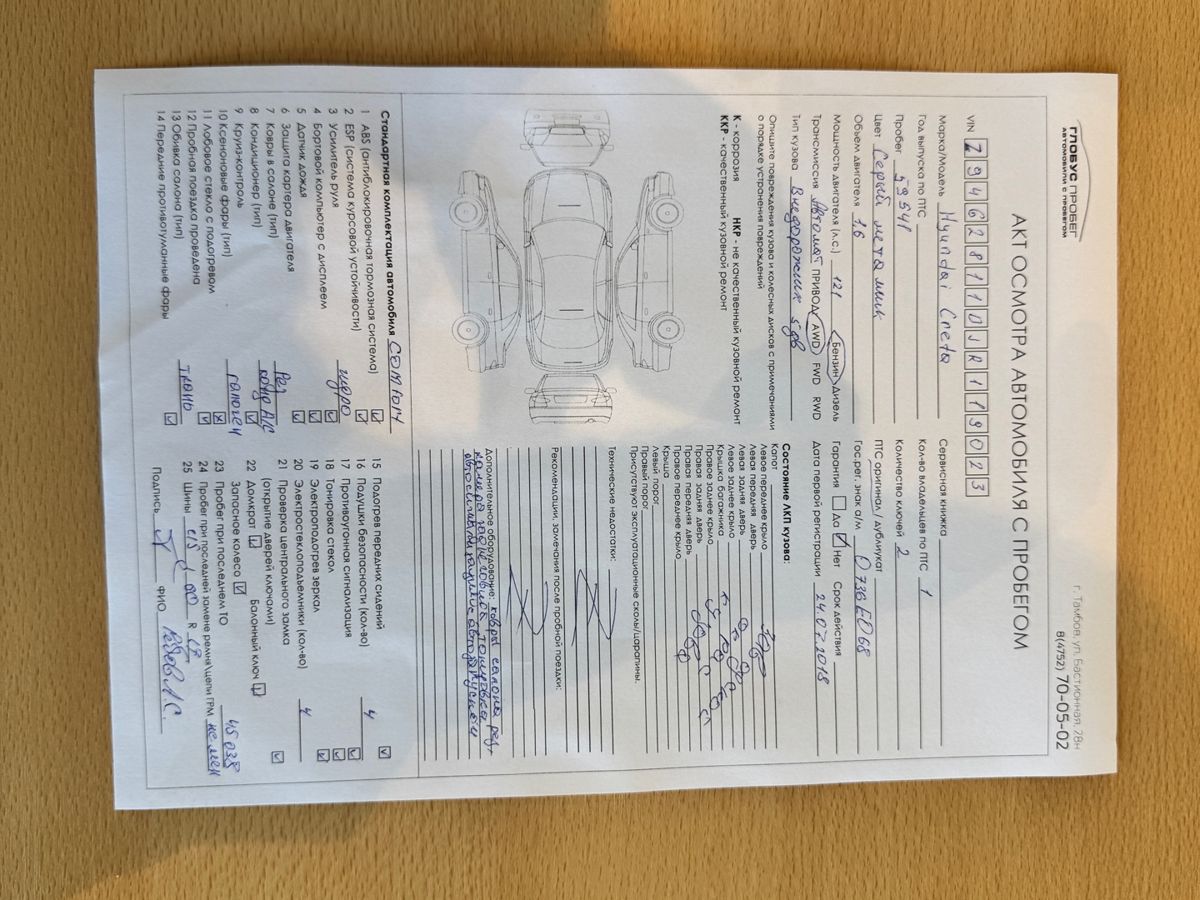 ГЛОБУС ПРОБЕГ
АВТОМОБИЛИ С ПРОБЕГОМ
г. Тамбов, ул. Бастионная, 28н
8(4752) 70-05-02
АКТ ОСМОТРА АВТОМОБИЛЯ С ПРОБЕГОМ
VIN Z94G2811JR119023
Марка/Модель Hyundai Creta
Год выпуска по ПТС
Пробег 59541
Цвет Серый металлик
Объем двигателя 1,6
Мощность двигателя (л.с.) 121 Бензин Дизель
Трансмиссия Автомат ПРИВОД AWD FWD RWD
Тип кузова Внедорожник 5 дв
Опишите повреждения кузова и колесных дисков с примечаниями
о порядке устранения повреждений
К - коррозия НКР - не качественный кузовной ремонт
ККР - качественный кузовной ремонт
Сервисная книжка
Кол-во владельцев по ПТС 1
Количество ключей 2
ПТС оригинал / дубликат
Гос.рег. знак а/м О736ЕО68
Гарантия Да Нет Срок действия
Дата первой регистрации 24.07.2018
Состояние ЛКП кузова:
Капот
Левое переднее крыло
Левая передняя дверь
Левая задняя дверь
Левое заднее крыло
Крышка багажника
Правое заднее крыло
Правая задняя дверь
Правая передняя дверь
Правое переднее крыло
Крыша
Левый порог
Правый порог
Присутствуют эксплуатационные сколы/царапины.
Технические недостатки:
Рекомендации, замечания после пробной поездки:
Дополнительное оборудование: ковры салона рез.
Стандартная комплектация автомобиля Comfort
1 ABS (антиблокировочная тормозная система)
2 ESP (система курсовой устойчивости)
3 Усилитель руля гидро
4 Бортовой компьютер с дисплеем
5 Датчик дождя
6 Защита картера двигателя
7 Ковры в салоне (тип) Рез
8 Кондиционер (тип) конд A/C
9 Круиз-контроль
10 Ксеноновые фары (тип) галоген
11 Лобовое стекло с подогревом
12 Пробная поездка проведена
13 Обивка салона (тип) ткань
14 Передние противотуманные фары
15 Подогрев передних сидений
16 Подушки безопасности (кол-во) 4
17 Противоугонная сигнализация
18 Тонировка стекол
19 Электроподогрев зеркал
20 Электростеклоподъемники (кол-во) 4
21 Проверка центрального замка
(открытие дверей ключами)
22 Домкрат Балонный ключ
Запасное колесо
23 Пробег при последнем ТО 45 035
24 Пробег при последней замене ремня\цепи ГРМ не мен
25 Шины R
Подпись ФИО